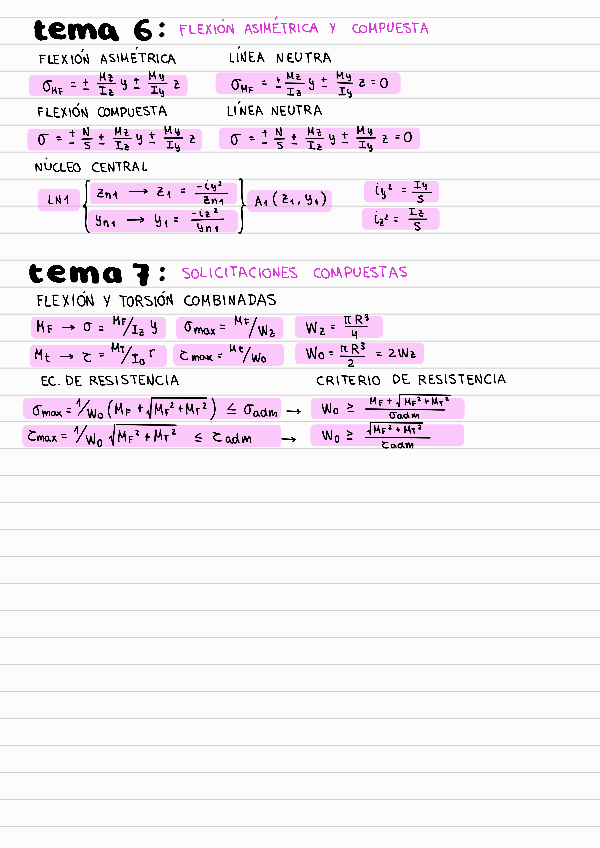 tema 6: FLEXIÓN ASIMÉTRICA Y COMPUESTA
FLEXIÓN ASIMÉTRICA LÍNEA NEUTRA
σMF = ± Mz/Iz y ± My/Iy z σMF = ± Mz/Iz y ± My/Iy z = 0
FLEXIÓN COMPUESTA LÍNEA NEUTRA
σ = ± N/S ± Mz/Iz y ± My/Iy z σ = ± N/S ± Mz/Iz y ± My/Iy z = 0
NÚCLEO CENTRAL
LN1 { zn1 → z1 = -iy²/zn1 } A1 (z1, y1) iy² = Iy/S
yn1 → y1 = -iz²/yn1 iz² = Iz/S
tema 7: SOLICITACIONES COMPUESTAS
FLEXIÓN Y TORSIÓN COMBINADAS
MF → σ = MF/Iz y σmax = MF/Wz Wz = πR³/4
Mt → τ = MT/Io r τmax = Mt/Wo Wo = πR³/2 = 2Wz
EC. DE RESISTENCIA CRITERIO DE RESISTENCIA
σmax = 1/Wo (MF + √MF² + MT²) ≤ σadm → Wo ≥ MF + √MF² + MT²/σadm
τmax = 1/Wo √MF² + MT² ≤ τadm → Wo ≥ √MF² + MT²/τadm